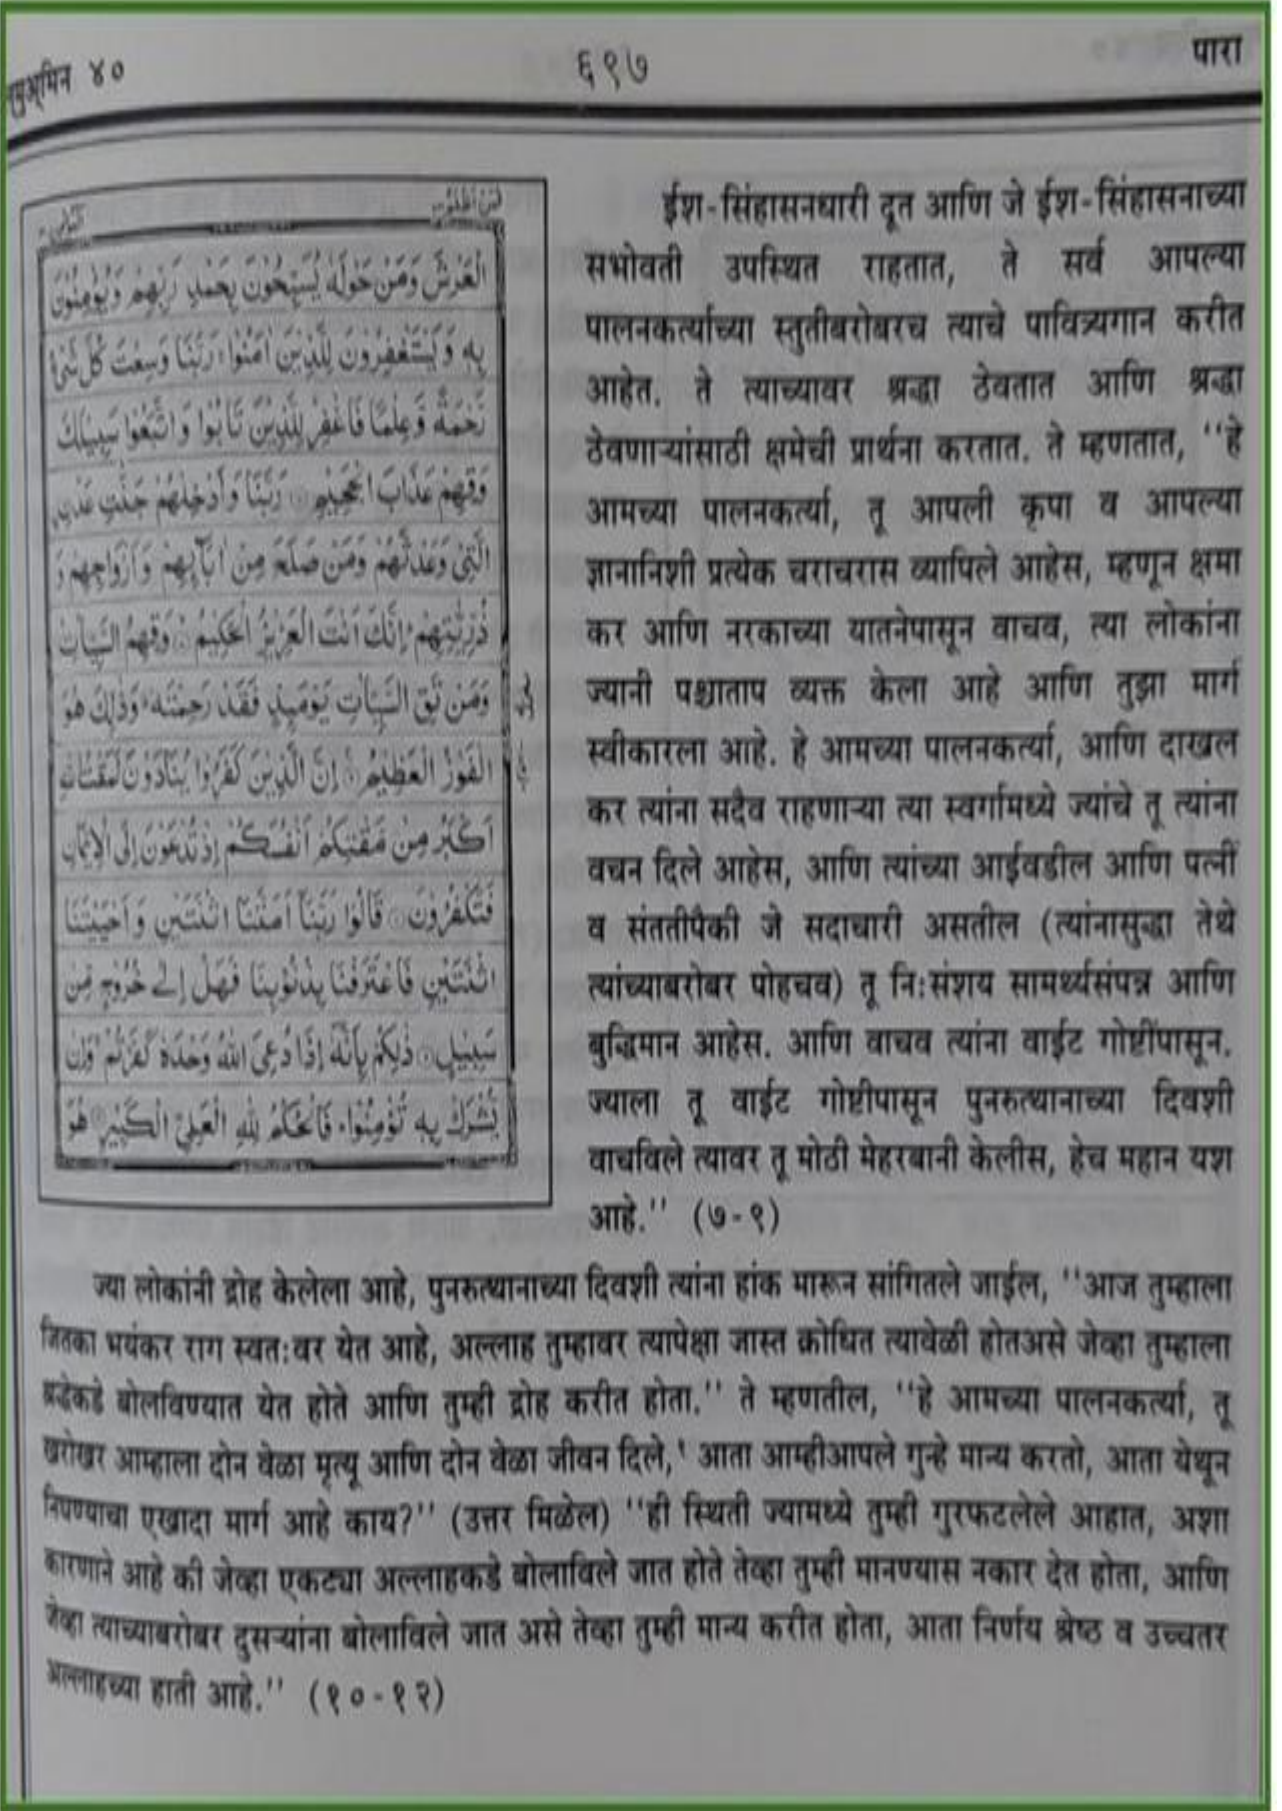 मुअ्मिन ४०
६९७
पारा
الْعَرْشَ وَمَنْ حَوْلَهٗ يُسَبِّحُوْنَ بِحَمْدِ رَبِّهِمْ وَيُؤْمِنُوْنَ
بِهٖ وَيَسْتَغْفِرُوْنَ لِلَّذِيْنَ اٰمَنُوْا، رَبَّنَا وَسِعْتَ كُلَّ شَيْءٍ
رَّحْمَةً وَّعِلْمًا فَاغْفِرْ لِلَّذِيْنَ تَابُوْا وَاتَّبَعُوْا سَبِيْلَكَ
وَقِهِمْ عَذَابَ الْجَحِيْمِ رَبَّنَا وَاَدْخِلْهُمْ جَنّٰتِ عَدْنِ
الَّتِيْ وَعَدْتَّهُمْ وَمَنْ صَلَحَ مِنْ اٰبَآئِهِمْ وَاَزْوَاجِهِمْ وَ
ذُرِّيّٰتِهِمْ اِنَّكَ اَنْتَ الْعَزِيْزُ الْحَكِيْمُ وَقِهِمُ السَّيِّاٰتِ
وَمَنْ تَقِ السَّيِّاٰتِ يَوْمَئِذٍ فَقَدْ رَحِمْتَهٗ، وَذٰلِكَ هُوَ
الْفَوْزُ الْعَظِيْمُ اِنَّ الَّذِيْنَ كَفَرُوْا يُنَادَوْنَ لَمَقْتُ اللّٰهِ
اَكْبَرُ مِنْ مَّقْتِكُمْ اَنْفُسَكُمْ اِذْ تُدْعَوْنَ اِلَى الْاِيْمَانِ
فَتَكْفُرُوْنَ قَالُوْا رَبَّنَا اَمَتَّنَا اثْنَتَيْنِ وَاَحْيَيْتَنَا
اثْنَتَيْنِ فَاعْتَرَفْنَا بِذُنُوْبِنَا فَهَلْ اِلٰى خُرُوْجٍ مِّنْ
سَبِيْلٍ ذٰلِكُمْ بِاَنَّهٗ اِذَا دُعِيَ اللّٰهُ وَحْدَهٗ كَفَرْتُمْ وَاِنْ
يُّشْرَكْ بِهٖ تُؤْمِنُوْا، فَالْحُكْمُ لِلّٰهِ الْعَلِيِّ الْكَبِيْرِ هُوَ
ईश-सिंहासनधारी दूत आणि जे ईश-सिंहासनाच्या
सभोवती उपस्थित राहतात, ते सर्व आपल्या
पालनकर्त्याच्या स्तुतीबरोबरच त्याचे पावित्र्यगान करीत
आहेत. ते त्याच्यावर श्रद्धा ठेवतात आणि श्रद्धा
ठेवणाऱ्यांसाठी क्षमेची प्रार्थना करतात. ते म्हणतात, ''हे
आमच्या पालनकर्त्या, तू आपली कृपा व आपल्या
ज्ञानानिशी प्रत्येक चराचरास व्यापिले आहेस, म्हणून क्षमा
कर आणि नरकाच्या यातनेपासून वाचव, त्या लोकांना
ज्यानी पश्चाताप व्यक्त केला आहे आणि तुझा मार्ग
स्वीकारला आहे. हे आमच्या पालनकर्त्या, आणि दाखल
कर त्यांना सदैव राहणाऱ्या त्या स्वर्गामध्ये ज्यांचे तू त्यांना
वचन दिले आहेस, आणि त्यांच्या आईवडील आणि पत्नीं
व संततीपैकी जे सदाचारी असतील (त्यांनासुद्धा तेथे
त्यांच्याबरोबर पोहचव) तू नि:संशय सामर्थ्यसंपन्न आणि
बुद्धिमान आहेस. आणि वाचव त्यांना वाईट गोष्टींपासून.
ज्याला तू वाईट गोष्टीपासून पुनरुत्थानाच्या दिवशी
वाचविले त्यावर तू मोठी मेहरबानी केलीस, हेच महान यश
आहे.'' (७-९)
ज्या लोकांनी द्रोह केलेला आहे, पुनरुत्थानाच्या दिवशी त्यांना हांक मारून सांगितले जाईल, ''आज तुम्हाला
जितका भयंकर राग स्वत:वर येत आहे, अल्लाह तुम्हावर त्यापेक्षा जास्त क्रोधित त्यावेळी होतअसे जेव्हा तुम्हाला
श्रद्धेकडे बोलविण्यात येत होते आणि तुम्ही द्रोह करीत होता.'' ते म्हणतील, ''हे आमच्या पालनकर्त्या, तू
खरोखर आम्हाला दोन वेळा मृत्यू आणि दोन वेळा जीवन दिले,¹ आता आम्हीआपले गुन्हे मान्य करतो, आता येथून
निघण्याचा एखादा मार्ग आहे काय?'' (उत्तर मिळेल) ''ही स्थिती ज्यामध्ये तुम्ही गुरफटलेले आहात, अशा
कारणाने आहे की जेव्हा एकट्या अल्लाहकडे बोलाविले जात होते तेव्हा तुम्ही मानण्यास नकार देत होता, आणि
जेव्हा त्याच्याबरोबर दुसऱ्यांना बोलाविले जात असे तेव्हा तुम्ही मान्य करीत होता, आता निर्णय श्रेष्ठ व उच्चतर
अल्लाहच्या हाती आहे.'' (१०-१२)